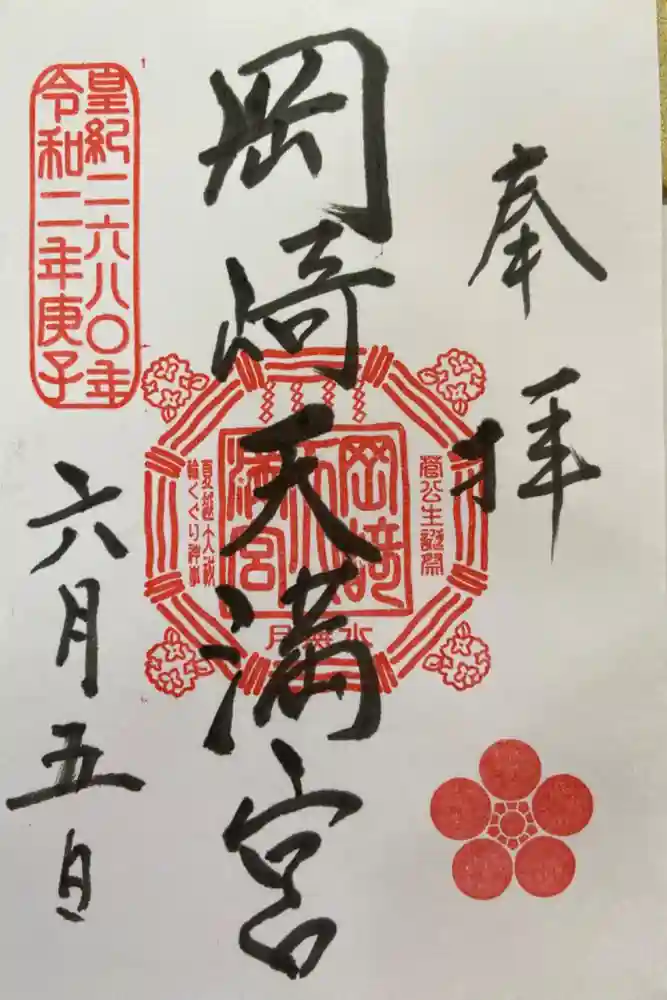 奉拝
岡崎天満宮
菅公生誕祭
岡﨑
天満宮
水無月
夏越大祓
輪くぐり神事
皇紀二六八〇年
令和二年庚子
六月五日